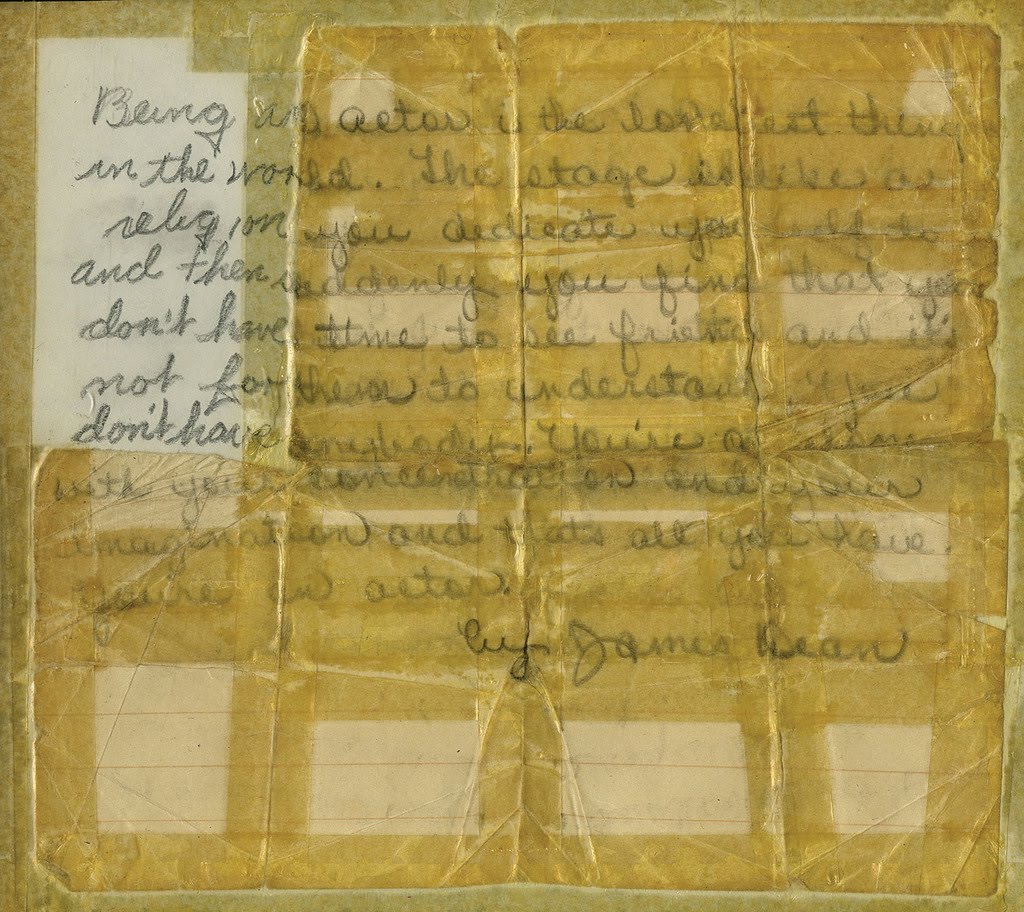 Being an actor is the loneliest thing
in the world. The stage is like a
religion you dedicate yourself to
and then suddenly you find that you
don't have time to see friends and it's
not for them to understand. You
don't have anybody. You're all alone
with your concentration and your
imagination and that's all you have.
You're an actor.
by James Dean